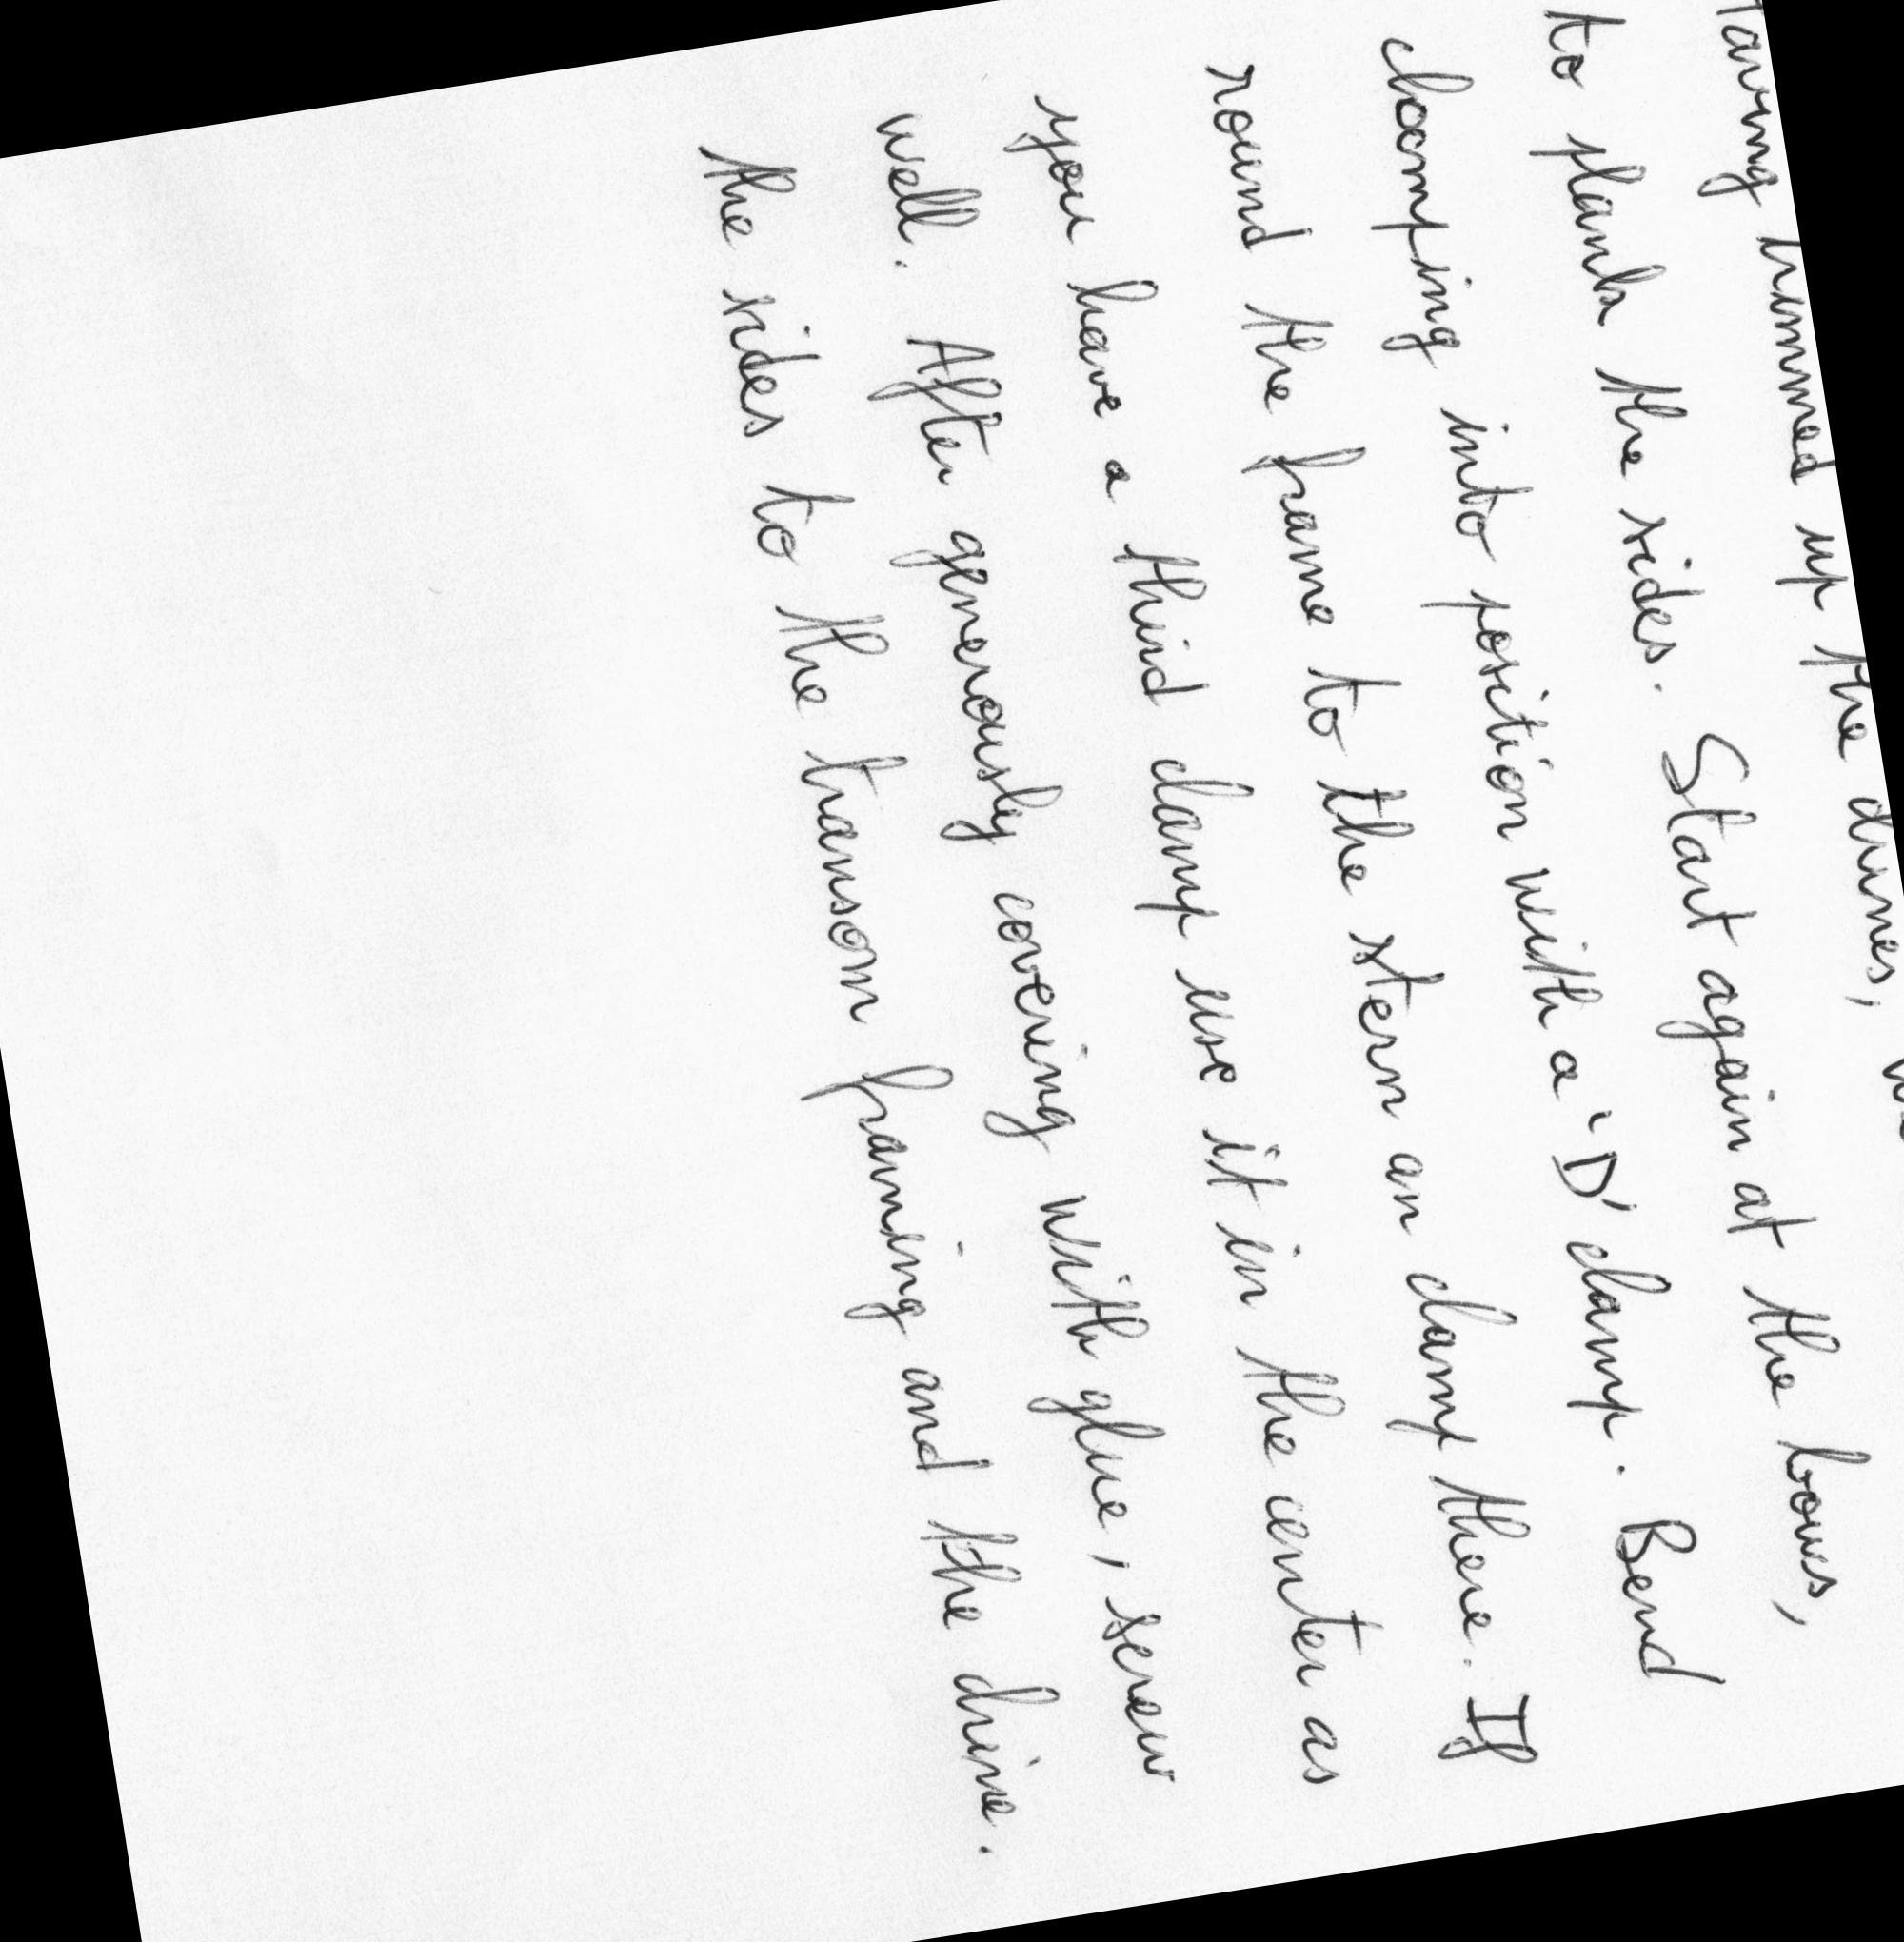 Having trimmed up the chines,
to plank the sides. Start again at the bows,
clamping into position with a 'D' clamp. Bend
round the frame to the stern an clamp there. If
you have a third clamp use it in the center as
well. After generously covering with glue, screw
the sides to the transom framing and the chine.